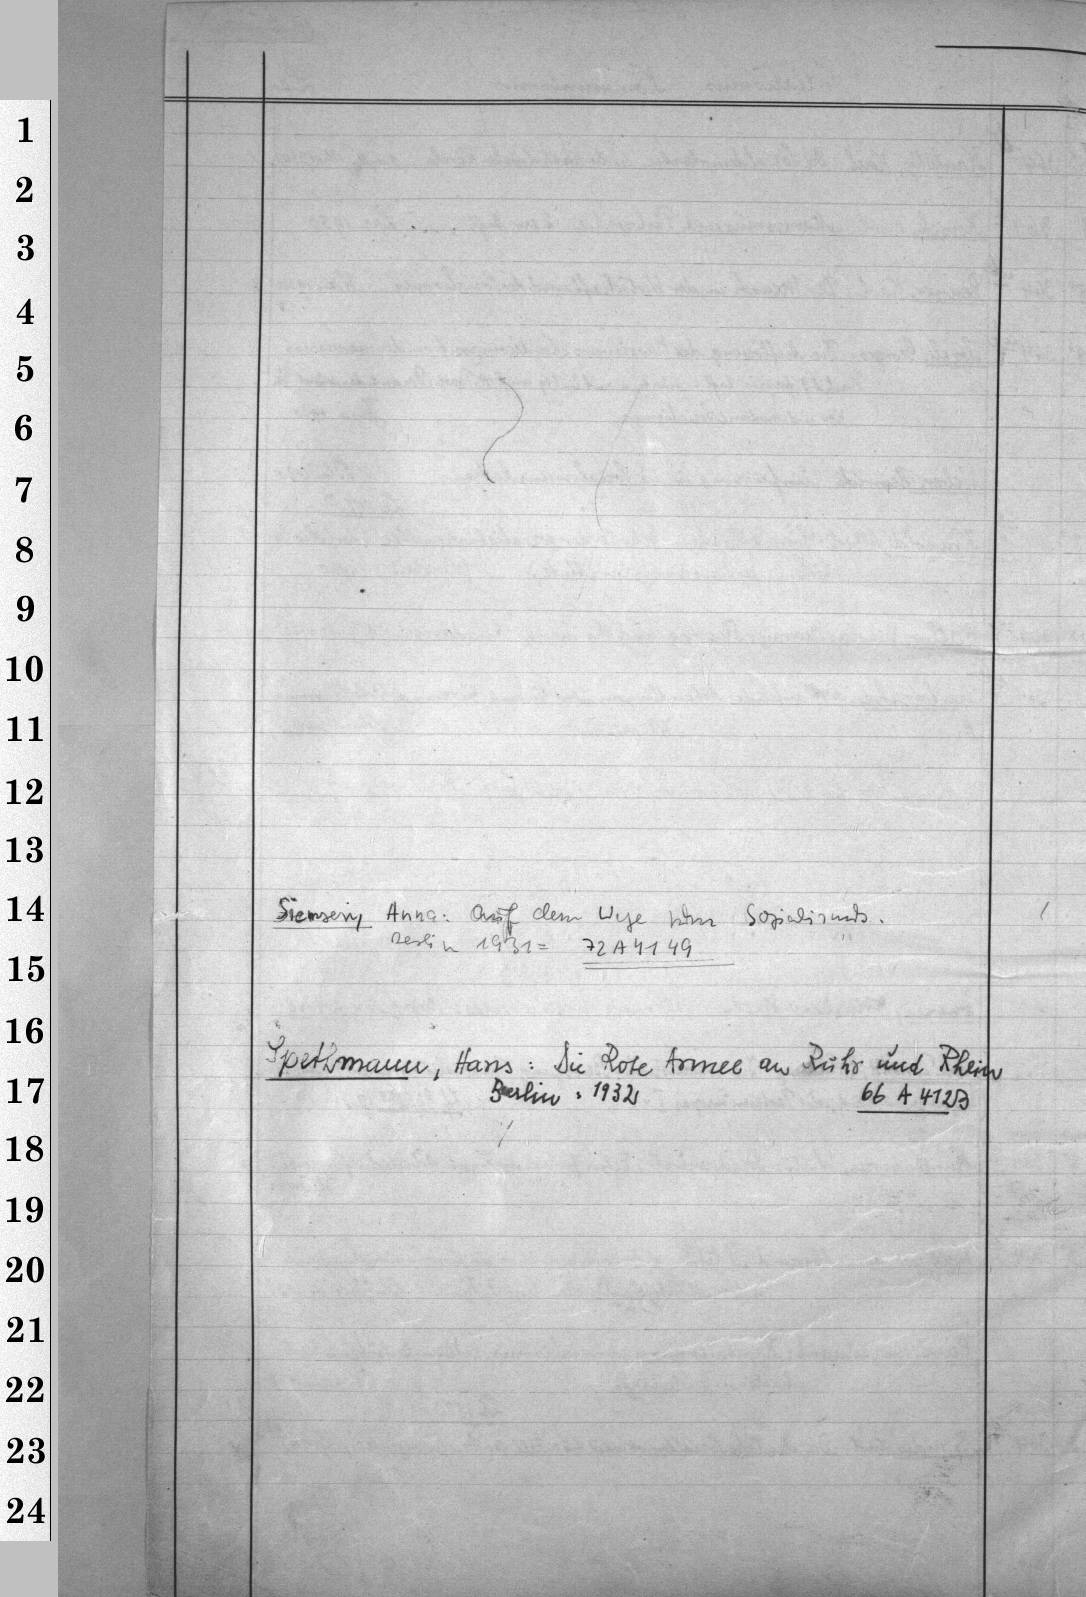 1
2
3
4
5
6
7
8
9
10
11
12
13
14
Siemsen, Anna: Auf dem Wege zum Sozialismus.
15
Berlin 1931 = 72 A 4149
16
Spethmann, Hans: Die Rote Armee an Ruhr und Rhein
17
Berlin. 1932 66 A 4123
18
19
20
21
22
23
24